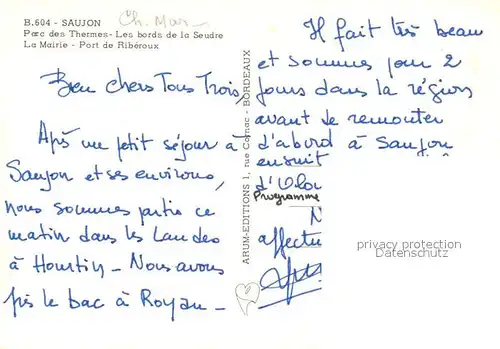 B.604 - SAUJON
Parc des Thermes - Les bords de la Seudre
La Mairie - Port de Ribéroux
Bien chers Tous Trois,
Après un petit séjour à
Saujon et ses environs,
nous sommes partis ce
matin dans les Landes
à Hourtin - Nous avons
pris le bac à Royan -
ARUM-EDITIONS 1, rue Cornac - BORDEAUX
Il fait très beau
et sommes pour 2
jours dans la région
avant de remonter
d'abord à Saujon
ensuit
Programme
N
affectu
privacy protection
Datenschutz